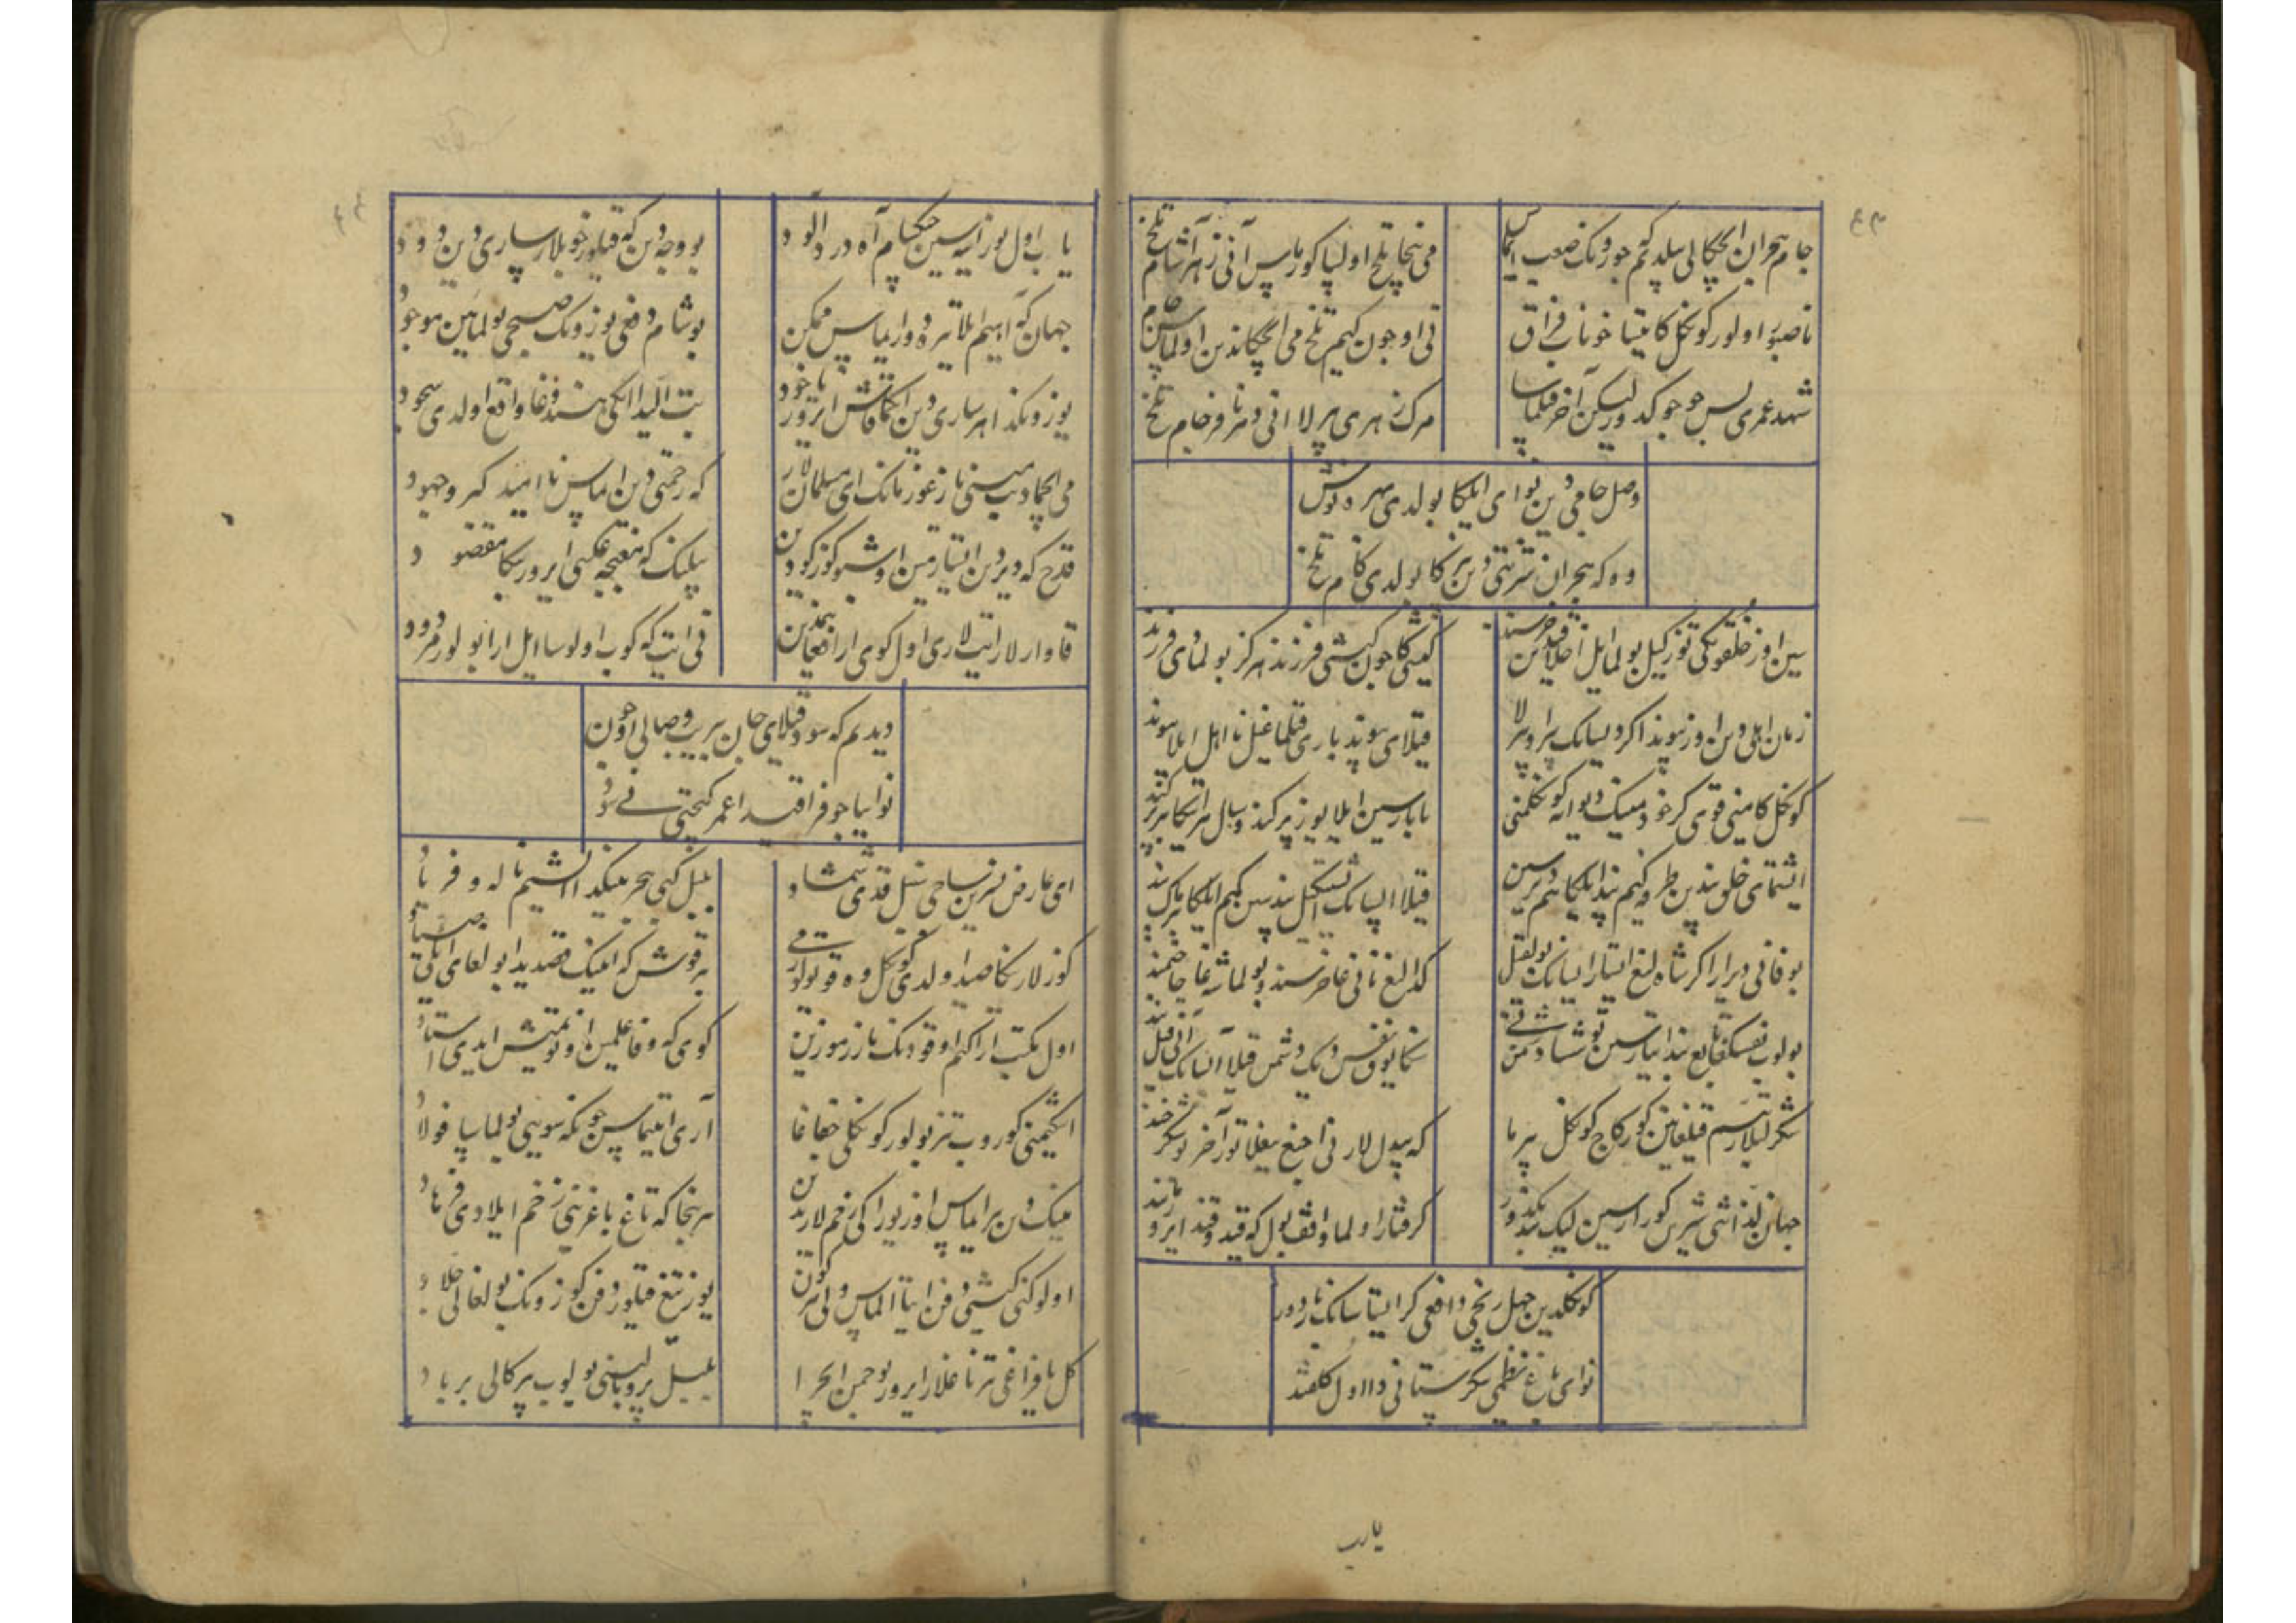 جام هجران ایچکالی بیلدیم که جورونک صعب ایماس
می نیچا تلخ اولسا کورماس آنی زهر آشام تلخ
ناصبور اولور کونکل کا یتسا خوناب فراق
نی اوچون کیم تلخ می ایچکاندین اولماس جام تلخ
شهد عمری بس چوچوکدور لیکن آخر قیلماسا
مرک زهری بیرلا انی دور نافرجام تلخ
وصل جامی دین نوایی ایلکا بولدی بهره نوش
وه که هجران شربتی دین بیزکا بولدی کام تلخ
سین اوز خلقونکنی توزکیل بولما ایل اخلاقیدین خرسند
کیشی کا چون کیشی فرزندی هرکز بولمادی فرزند
زمان اهلی دین اوز پیوند اکر دیسانک بیراو بیرلا
قیلای پیوند باری قیلماغیل نااهل ایلا پیوند
کونکل کامینی قوی کر خود مینینک دیوانه کونکلومنی
یاماسین ایلا یوز پرکند و سال هر ایتکا بیر پرکند
ایشتمای خلق پندین طرفه کیم پند ایلکا هم دیرسین
قیلا السانک ایشیتکیل پند سین کیم ایلکا بیرماک پند
بو فانی دیر ارا کر شاهلیغ ایستار ایسانک بولغیل
کدالیغ نانی غا خرسند و بولما شه غا حاجتمند
بولوب نفسینکغا تابع بند ایتارسین توشسا دشمن نی
سنکا یوق نفس دیک دشمن قیلا السانک آنی قیل بند
شکر لبلار تبسم قیلغانین کورکاچ کونکل بیرما
که بیدل لارنی اچیغ ییغلاتور آخر بو شکرخند
جهان لذاتی شیرین کورارسین لیک بنددور
کرفتار اولما واقف بول که قید و قند ایرور مانند
کونکلدین جهل رنجی دافعی کر ایستاسانک نا دور
نوایی باغ نظمی شکرستانی دا اول کلقند
یارب
یا بی اول یوز ایسه سین حکیم آه درد الود
بو وجه دین که قیلور خوبلار ساری دین دود
جهان که آهیم ایلا تیره دور ایماس ممکن
بو شام دفعی یوزونک صبحی بولمایین موجود
یوزونکدا هر ساری دین ایکما قاش ایرور یا خود
بت الیدا ایکی هندو غا واقع اولدی سجود
می ایچما دیب مینی نازغورمانک ای مسلمان لار
که رحمتی دین ایماس ناامید کبر و جهود
قدح که دیر دین ایستارمین اوشبو کوزکودین
بیلینک که مغبچه عکسی ایرور منکا مقصود
قاوارلار ایت لاری اول کوی ارا فغانیمدین
نی ایت که کوب اولوسا ایل ارا بولور مردود
دیدیم که سود قیلای جان بیریب وصالی اوچون
نوایا چو فراقیدا عمر کیچتی نی سود
ای عارضی نسرین ساچی سنبل قدی شمشاد
بلبل کبی هجرینکدا ایشیم ناله و فریاد
کوزلارنکا صید اولدی کونکل وه قوتولورمی
بیر قوش که انینک قصدیدا بولغای ایکی صیاد
اول مکتب ارا کیم اوقودنک ناز رموزین
کویا که وفا علمین اونوتمیش ایدی استاد
اشکیمنی کوروب تیز بولور کونکلی جفا غا
آری ایتیماس چونکه سویی بولماسا فولاد
مینینک دین بیر ایماس اوز یوراکی زخم لاریدین
هر نیچا که تاغ باغرینی زخم ایلادی فرهاد
اولوک نی کیشی دفن ایتا الماس
یوز تیغ قیلور دفن کوزونک بولغالی جلاد
کل یافراغی تیرناغلار ایرور بو چمن ایچرا
بلبل پر و بالینی یولوب بیرکالی برباد